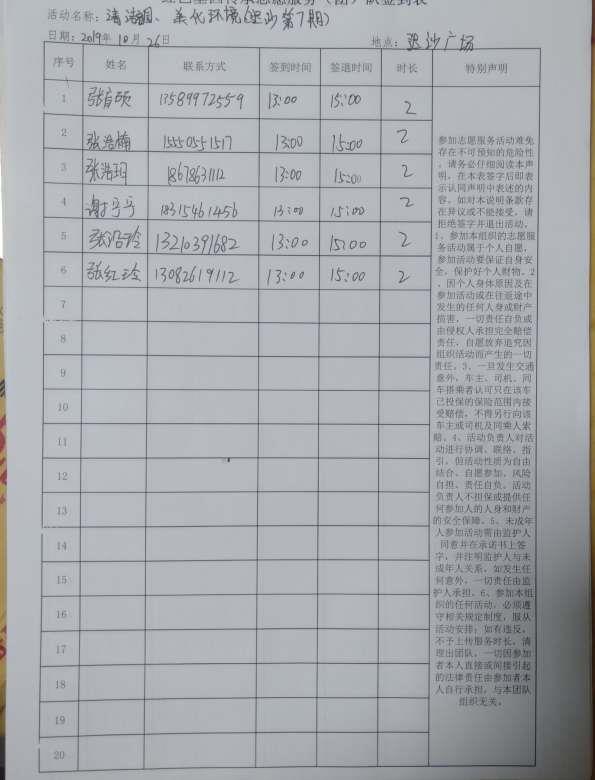 红色基因传承志愿服务（团）队签到表
活动名称：清洁家园、美化环境(泥沙第7期)
日期：2019年 10月 26日 地点：泥沙广场
序号 姓名 联系方式 签到时间 签退时间 时长 特别声明
1 13589972559 13:00 15:00 2
2 张浩楠 15550551517 13:00 15:00 2
3 张浩玥 18678631112 13:00 15:00 2
4 谢宁宁 18315461456 13:00 15:00 2
5 13210391682 13:00 15:00 2
6 张红玲 13082619112 13:00 15:00 2
7
8
9
10
11
12
13
14
15
16
17
18
19
20
参加志愿服务活动难免
存在不可预知的危险性
，请务必仔细阅读本声
明，在本表签字后即表
示认同声明中表述的内
容，如对本说明条款存
在异议或不能接受，请
拒绝签字并退出活动。
1、参加本组织的志愿服
务活动属于个人自愿，
参加活动要保证自身安
全，保护好个人财物。2
、因个人身体原因及在
参加活动或在往返途中
发生的任何人身或财产
损害，一切责任自负或
由侵权人承担完全赔偿
责任，自愿放弃追究因
组织活动而产生的一切
责任。3、一旦发生交通
意外，车主、司机、同
车搭乘者认可只在该车
已投保的保险范围内接
受赔偿，不得另行向该
车主或司机及同乘人索
赔。4、活动负责人对活
动进行协调、联络、指
引，但活动性质为自由
结合、自愿参加、风险
自担、责任自负。活动
负责人不担保或提供任
何参加人的人身和财产
的安全保障。5、未成年
人参加活动需由监护人
同意并在承诺书上签
字，并注明监护人与未
成年人关系，如发生任
何意外，一切责任由监
护人承担。6、参加本组
织的任何活动，必须遵
守相关规定制度，服从
活动安排；如有违反，
不予上传服务时长，清
理出团队，一切因参加
者本人直接或间接引起
的法律责任由参加者本
人自行承担，与本团队
组织无关。